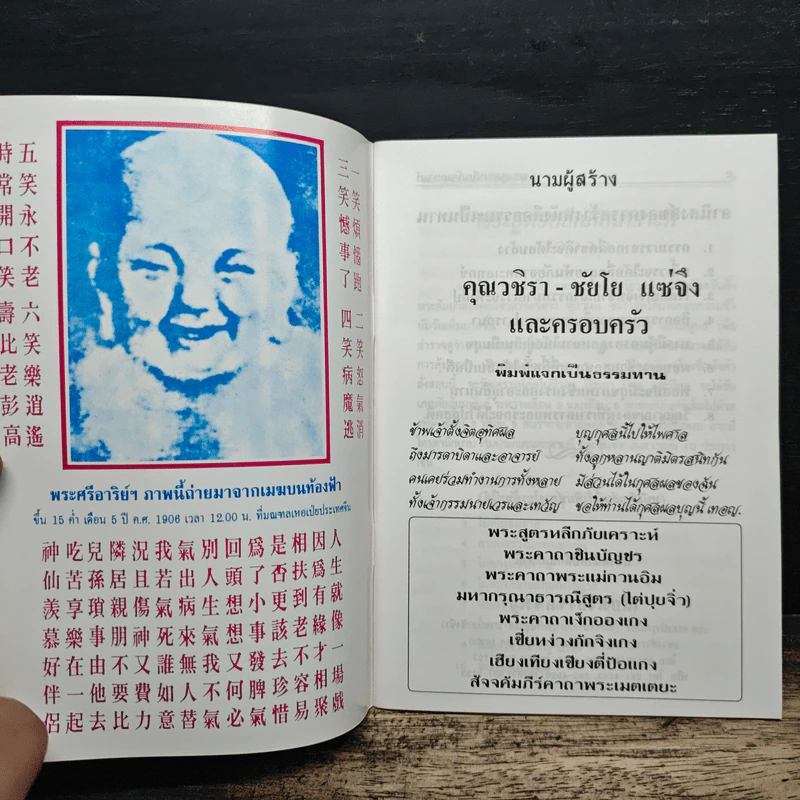 一笑煩惱跑 二笑怒氣消
三笑憾事了 四笑病魔逃
五笑永不老 六笑樂逍遙
時常開口笑 壽比老彭高
พระศรีอาริย์ฯ ภาพนี้ถ่ายมาจากเมฆบนท้องฟ้า
ขึ้น 15 ค่ำ เดือน 5 ปี ค.ศ. 1906 เวลา 12.00 น. ที่มณฑลเหอเป่ยประเทศจีน
人生就像一場戲
因爲有緣才相聚
相扶到老不容易
是否更該去珍惜
爲了小事發脾氣
回頭想想又何必
別人生氣我不氣
氣出病來無人替
我若氣死誰如意
況且傷神又費力
鄰居親朋不要比
兒孫瑣事由他去
吃苦享樂在一起
神仙羨慕好伴侶
นามผู้สร้าง
คุณวชิรา - ชัยโย แซ่จึง
และครอบครัว
พิมพ์แจกเป็นธรรมทาน
ข้าพเจ้าตั้งจิตอุทิศผล บุญกุศลนี้ไปให้ไพศาล
ถึงมารดาบิดาและอาจารย์ ทั้งลูกหลานญาติมิตรสนิทกัน
คนเคยร่วมทำงานการทั้งหลาย มีส่วนได้ในกุศลผลของฉัน
ทั้งเจ้ากรรมนายเวรและเทวัญ ขอให้ท่านได้กุศลผลบุญนี้ เทอญ.
พระสูตรหลีกภัยเคราะห์
พระคาถาชินบัญชร
พระคาถาพระแม่กวนอิม
มหากรุณาธารณีสูตร (ไต่ปุยจิ่ว)
พระคาถาเง็กอองเกง
เซี่ยหง่วงกักจิงเกง
เฮียงเทียงเซียงตี่ป้อแกง
สัจจคัมภีร์คาถาพระเมตเตยะ